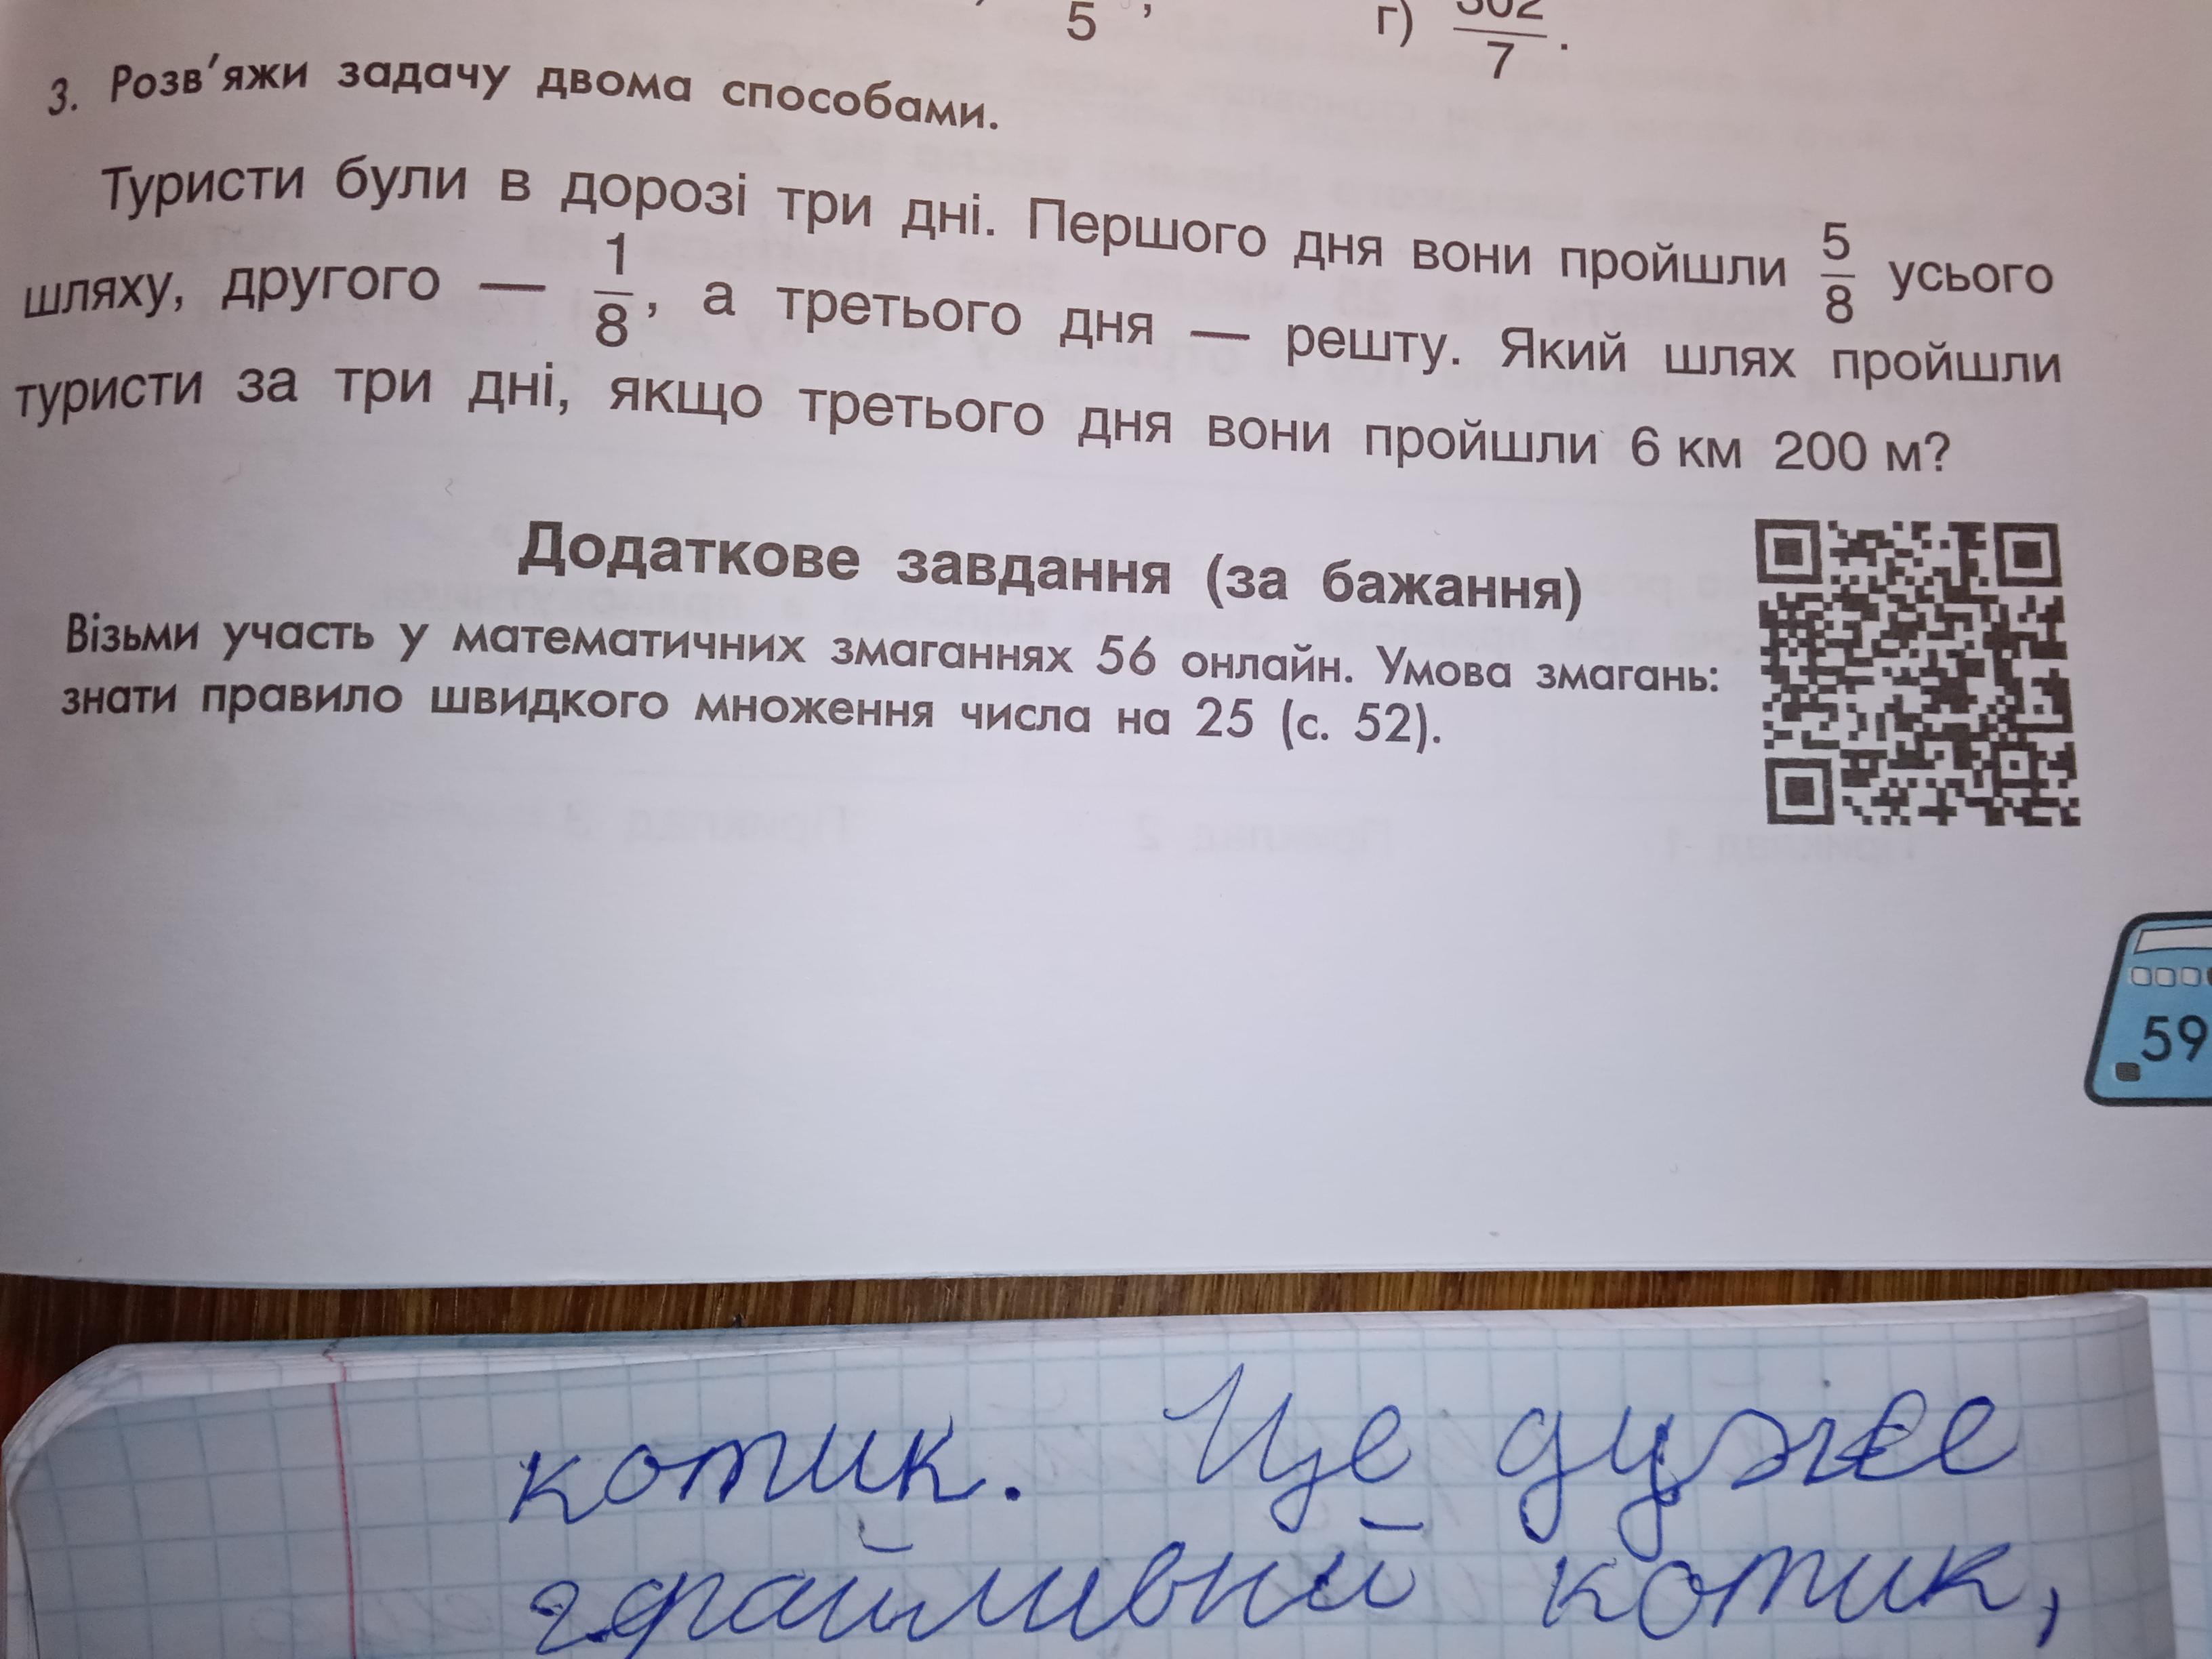 5 ,
г) 302/7.
3. Розв'яжи задачу двома способами.
Туристи були в дорозі три дні. Першого дня вони пройшли 5/8 усього
шляху, другого — 1/8, а третього дня — решту. Який шлях пройшли
туристи за три дні, якщо третього дня вони пройшли 6 км 200 м?
Додаткове завдання (за бажання)
Візьми участь у математичних змаганнях 56 онлайн. Умова змагань:
знати правило швидкого множення числа на 25 (с. 52).
59
котик. Це дуже
грайливий котик,